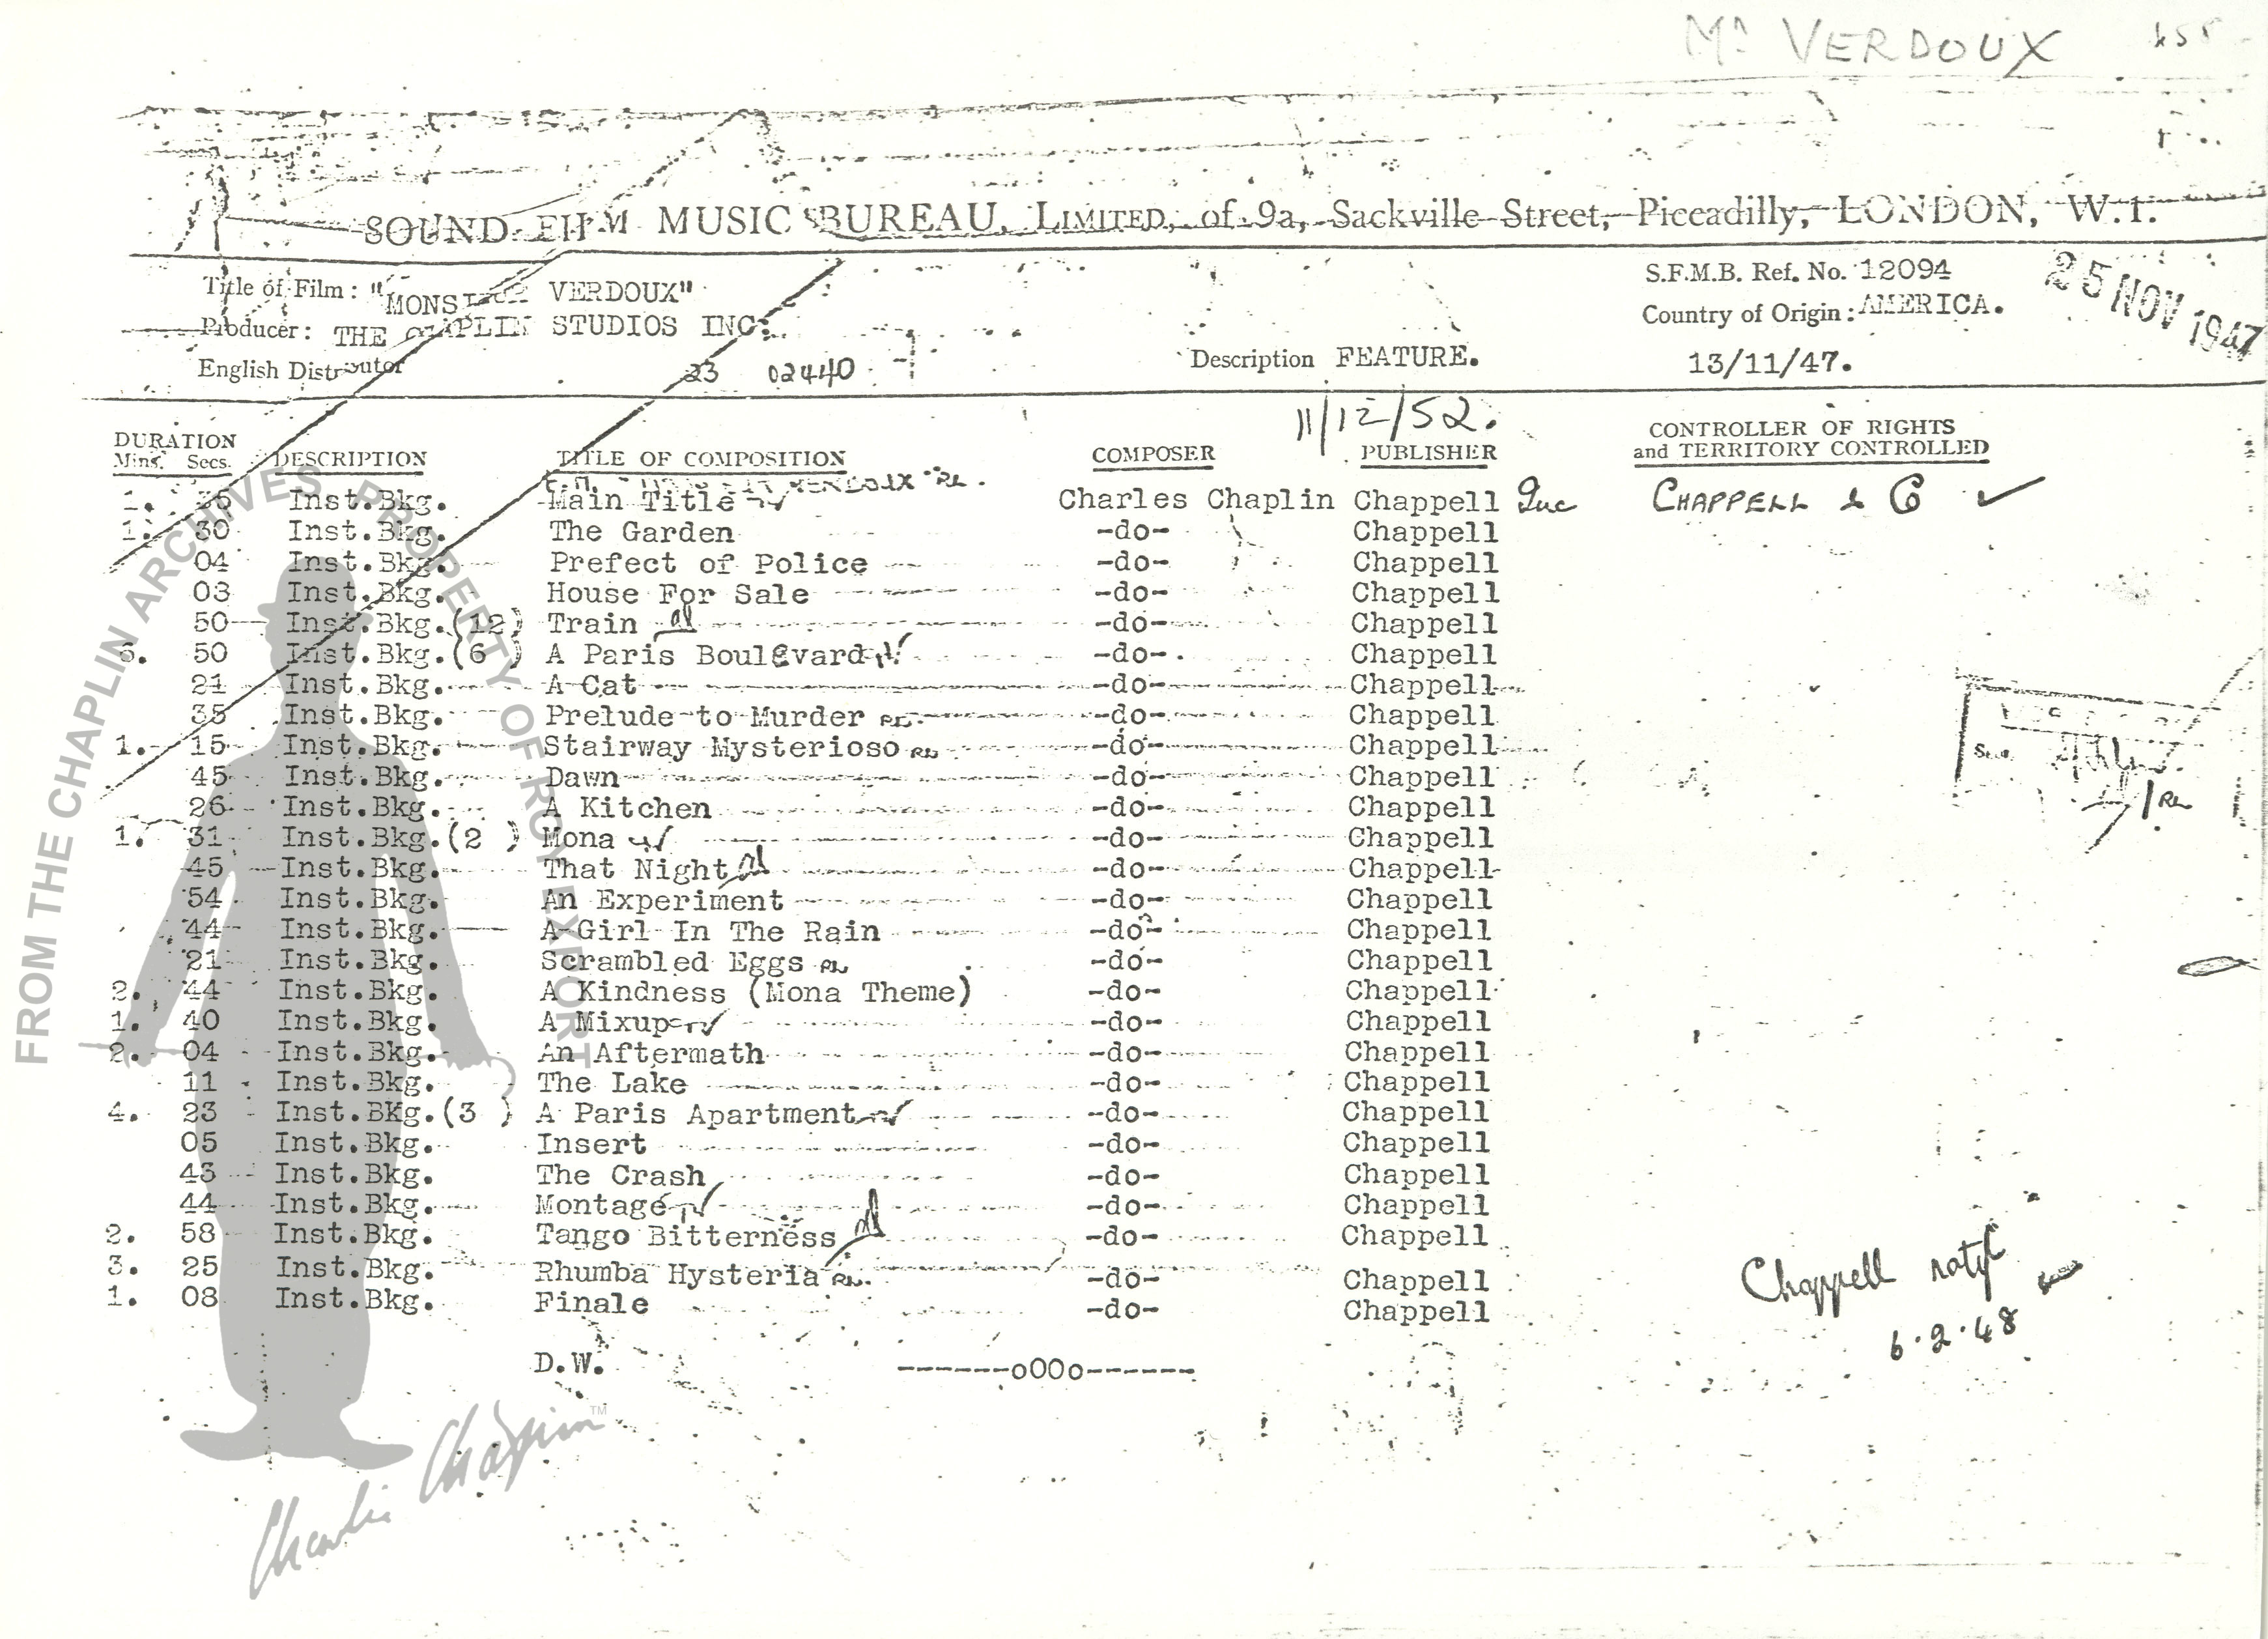 Mr VERDOUX
SOUND FILM MUSIC BUREAU, LIMITED, of 9a, Sackville Street, Piccadilly, LONDON, W.1.
Title of Film: "MONSIEUR VERDOUX" S.F.M.B. Ref. No. 12094
25 NOV 1947
Producer: THE CHAPLIN STUDIOS INC. Country of Origin: AMERICA.
English Distributor 23 02440 Description FEATURE. 13/11/47.
11/12/52.
DURATION
Mins. Secs. DESCRIPTION TITLE OF COMPOSITION COMPOSER PUBLISHER CONTROLLER OF RIGHTS
and TERRITORY CONTROLLED
1. 35 Inst.Bkg. Main Title Charles Chaplin Chappell Inc CHAPPELL & Co ✓
1. 30 Inst.Bkg. The Garden -do- Chappell
04 Inst.Bkg. Prefect of Police -do- Chappell
03 Inst.Bkg. House For Sale -do- Chappell
50 Inst.Bkg.(12) Train -do- Chappell
50 Inst.Bkg.(6 ) A Paris Boulevard -do- Chappell
21 Inst.Bkg. A Cat -do- Chappell
35 Inst.Bkg. Prelude to Murder RL. -do- Chappell
1. 15 Inst.Bkg. Stairway Mysterioso RL -do- Chappell
45 Inst.Bkg. Dawn -do- Chappell
26 Inst.Bkg. A Kitchen -do- Chappell
1. 31 Inst.Bkg.(2 ) Mona -do- Chappell
45 Inst.Bkg. That Night -do- Chappell
54 Inst.Bkg. An Experiment -do- Chappell
44 Inst.Bkg. A Girl In The Rain -do- Chappell
21 Inst.Bkg. Scrambled Eggs RL -do- Chappell
2. 44 Inst.Bkg. A Kindness (Mona Theme) -do- Chappell
1. 40 Inst.Bkg. A Mixup -do- Chappell
2. 04 Inst.Bkg. An Aftermath -do- Chappell
11 Inst.Bkg. The Lake -do- Chappell
4. 23 Inst.BKg.(3 ) A Paris Apartment -do- Chappell
05 Inst.Bkg. Insert -do- Chappell
43 Inst.Bkg. The Crash -do- Chappell
44 Inst.Bkg. Montage -do- Chappell
2. 58 Inst.Bkg. Tango Bitterness -do- Chappell
3. 25 Inst.Bkg. Rhumba Hysteria RL. -do- Chappell
1. 08 Inst.Bkg. Finale -do- Chappell
Chappell
6.2.48
D.W. -------oOOo-------
FROM THE CHAPLIN ARCHIVES PROPERTY OF ROY EXPORT
Charlie Chaplin™